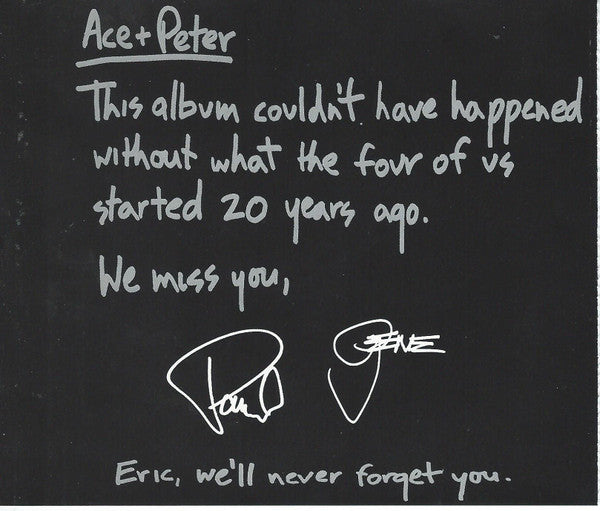 Ace + Peter
This album couldn't have happened
without what the four of us
started 20 years ago.
We miss you,
Paul GENE
Eric, we'll never forget you.